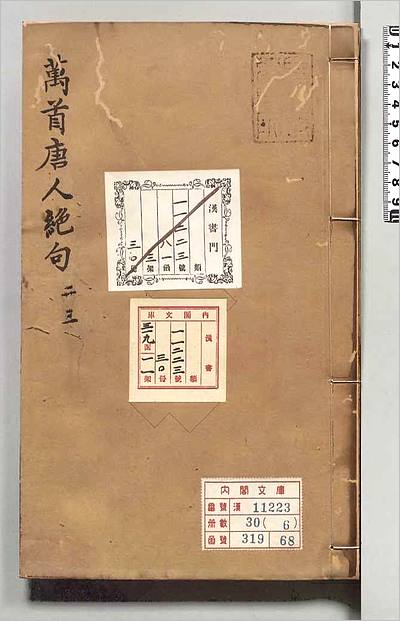 萬首唐人絕句 二十三
漢書門
類
一一二二三號
八一函
三架
三〇冊
內閣文庫
漢書
類
一一二二三號
三〇冊
三一九函
一一架
内閣文庫
番號 漢 11223
冊數 30(6)
函號 319 68
1 2 3 4 5 6 7 8 9